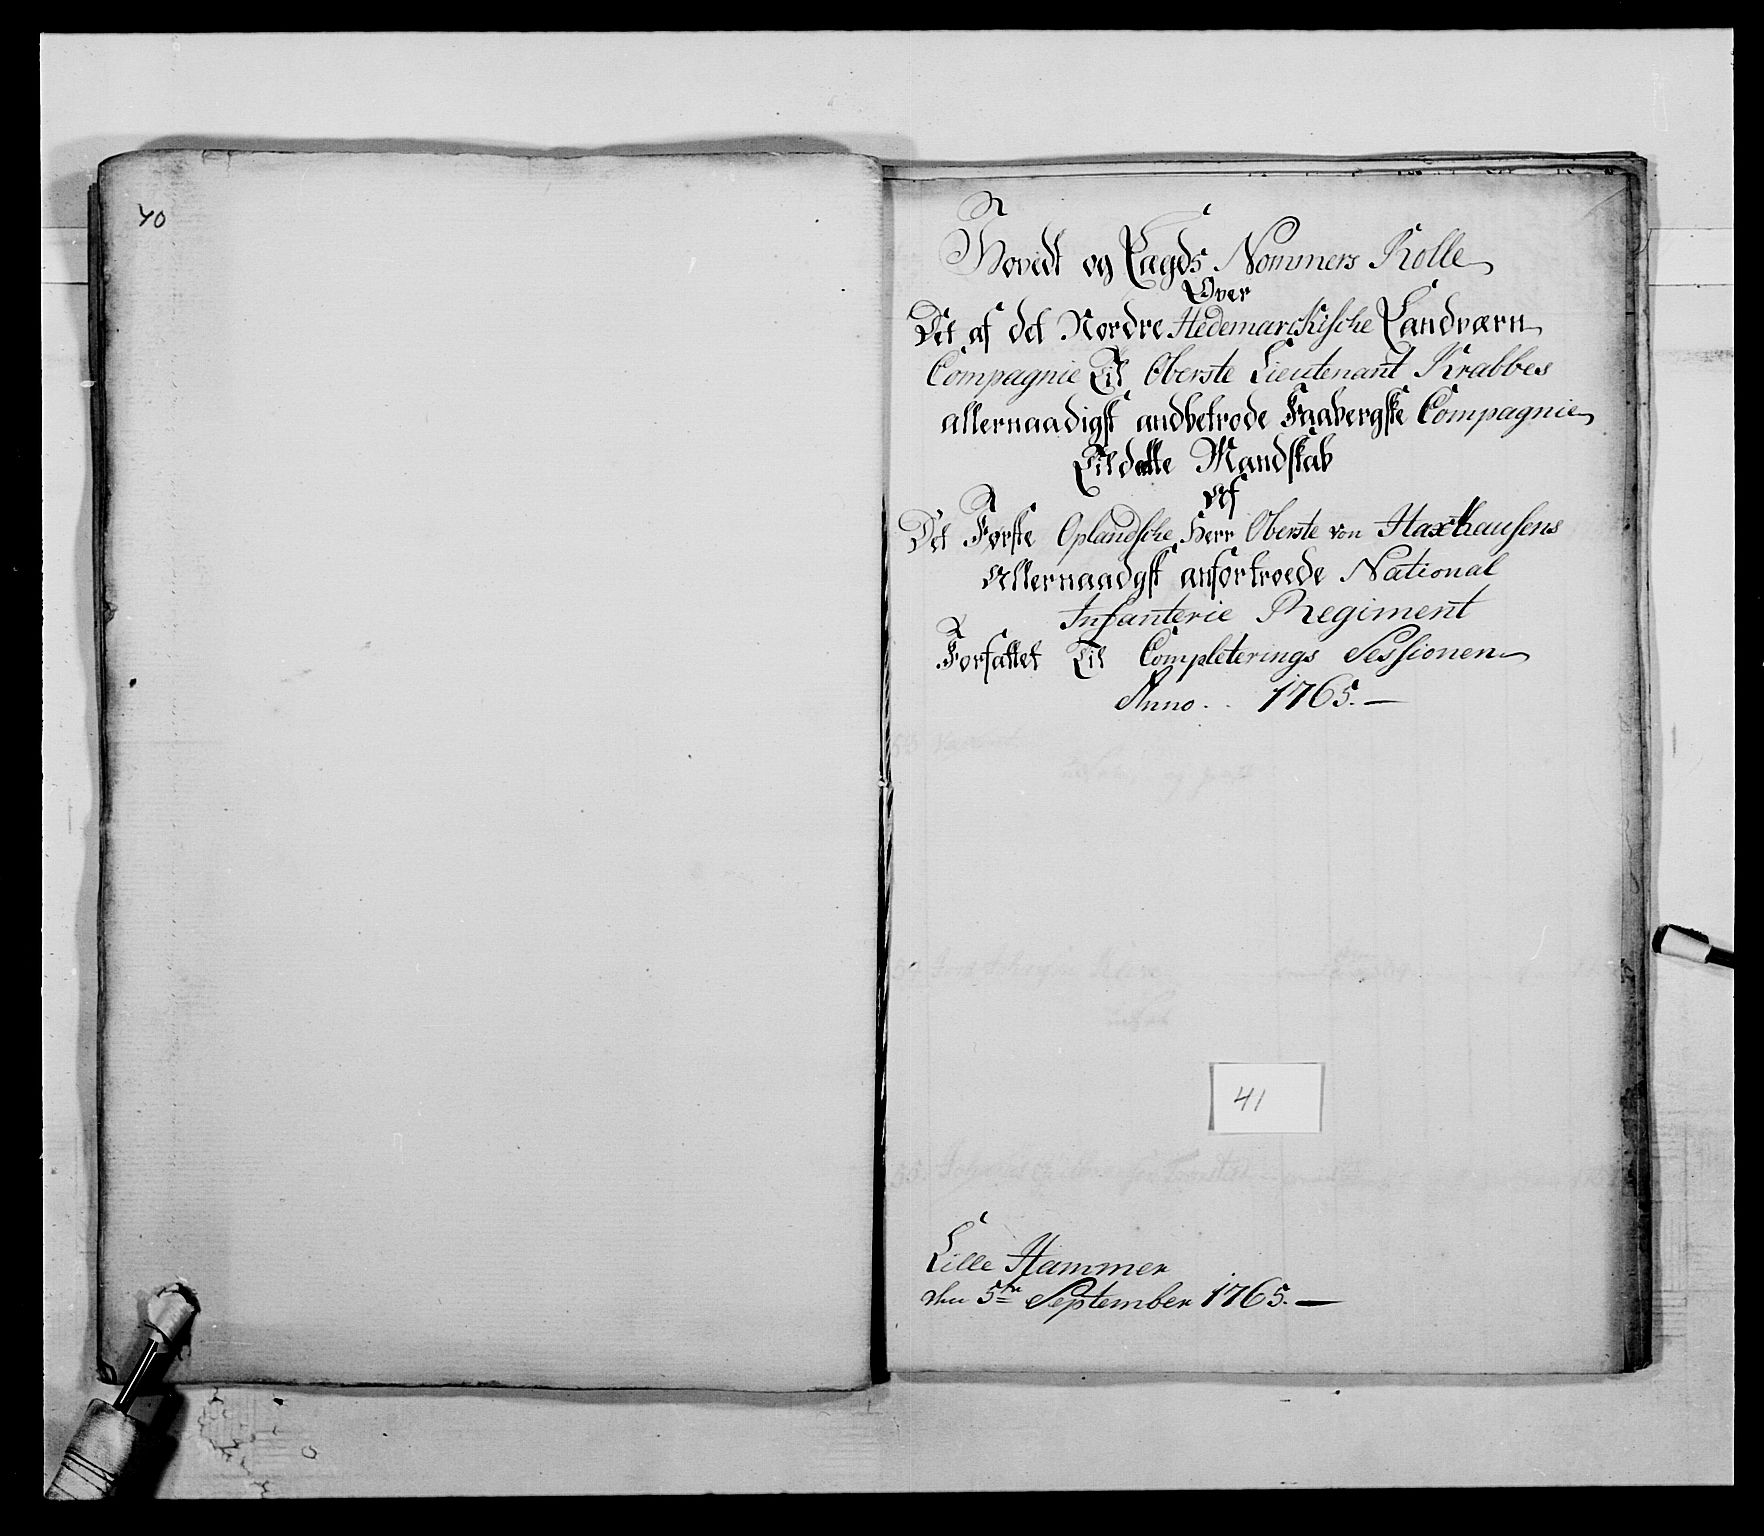 40
Hovedt og Lægds Nommers Rolle
Over
Det af det Nordre Hedemarckische Landværn
Compagnie Til Oberste Lieutenant Krabbes
allernaadigst andbetrode Faabergske Compagnie
Tildelte Mandskab
Af
Det Første Oplandsche Herr Oberste von Haxthausens
Allernaadgst anfortroede National
Infanterie Regiment
Forfattet Til Completerings Sessionen
Anno . . 1765. —
41
Lille Hammer
den 5te September 1765. —